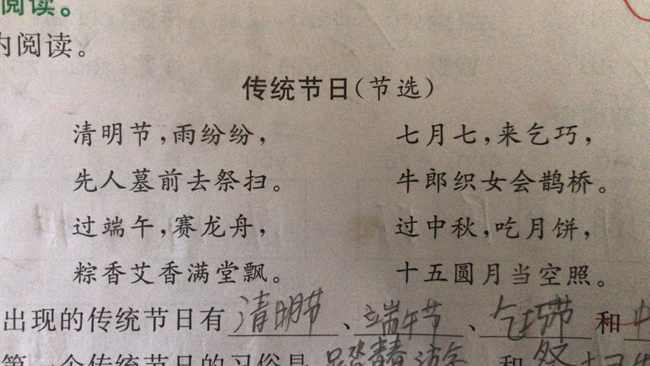 阅读。
内阅读。
传统节日(节选)
清明节,雨纷纷,
先人墓前去祭扫。
过端午,赛龙舟,
粽香艾香满堂飘。
七月七,来乞巧,
牛郎织女会鹊桥。
过中秋,吃月饼,
十五圆月当空照。
出现的传统节日有清明节、端午节、乞巧节和中
第一个传统节日的习俗是踏青和祭